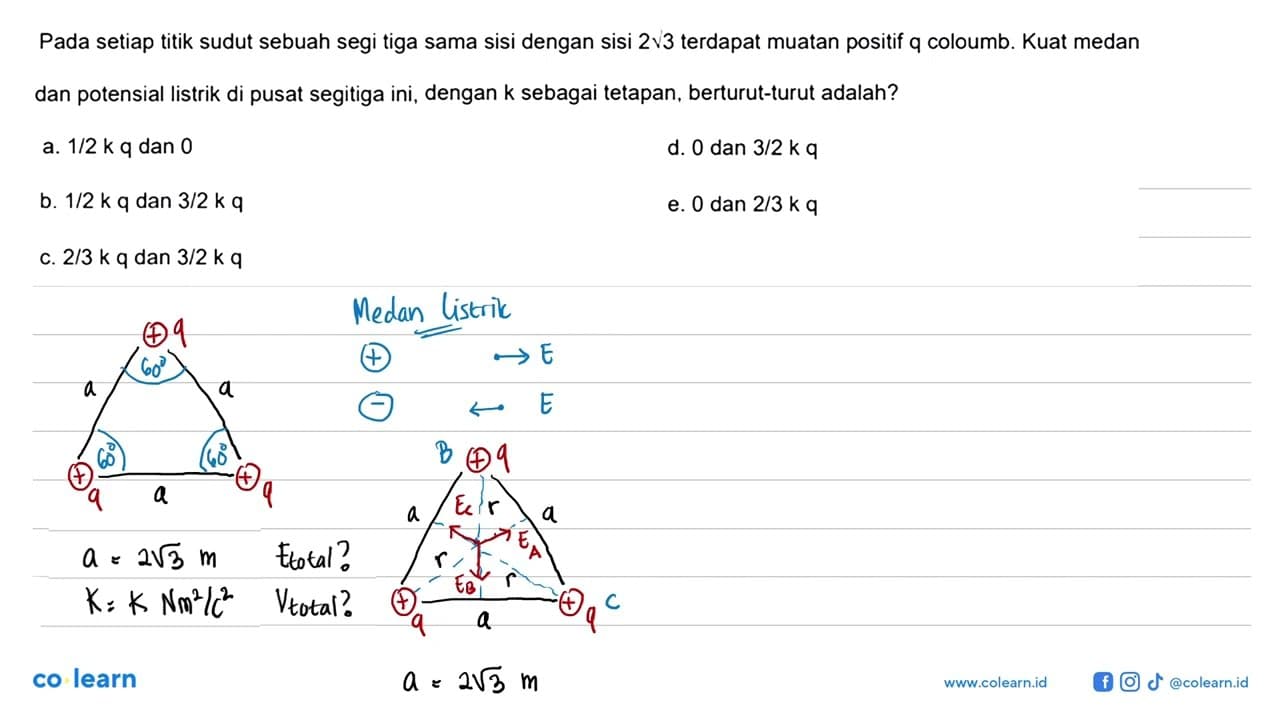 Pada setiap titik sudut sebuah segi tiga sama sisi dengan sisi 2√3 terdapat muatan positif q coloumb. Kuat medan
dan potensial listrik di pusat segitiga ini, dengan k sebagai tetapan, berturut-turut adalah?
a. 1/2 k q dan 0
d. 0 dan 3/2 k q
b. 1/2 k q dan 3/2 k q
e. 0 dan 2/3 k q
c. 2/3 k q dan 3/2 k q
Medan listrik
+ q
60°
+ E
a a
- E
60° 60°
+ q a + q
B + q
a Ec r a
EA
r EB r
+ q a + q C
a = 2√3 m Etotal?
K = K Nm²/C² Vtotal?
a = 2√3 m
co learn
www.colearn.id
@colearn.id